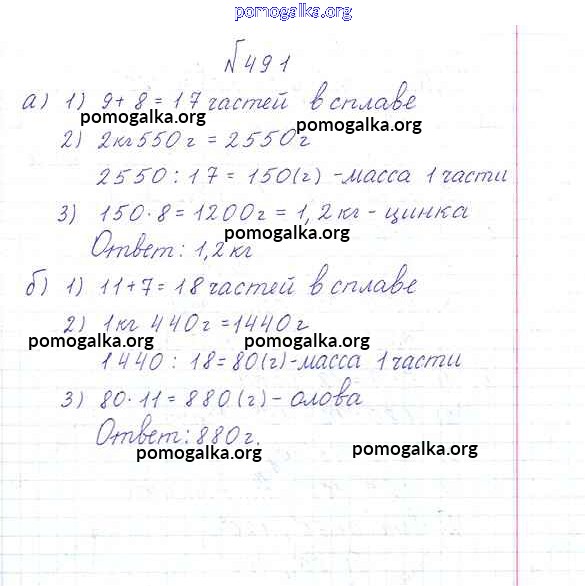 pomogalka.org
№ 491
а) 1) 9+8=17 частей в сплаве
pomogalka.org pomogalka.org
2) 2кг550г = 2550г
2550 : 17 = 150(г) - масса 1 части
3) 150·8=1200г = 1,2кг - цинка
pomogalka.org
Ответ: 1,2кг
б) 1) 11+7=18 частей в сплаве
2) 1кг 440г=1440г
pomogalka.org pomogalka.org
1440 : 18=80(г)-масса 1 части
3) 80·11=880(г)- олова
Ответ: 880г.
pomogalka.org pomogalka.org